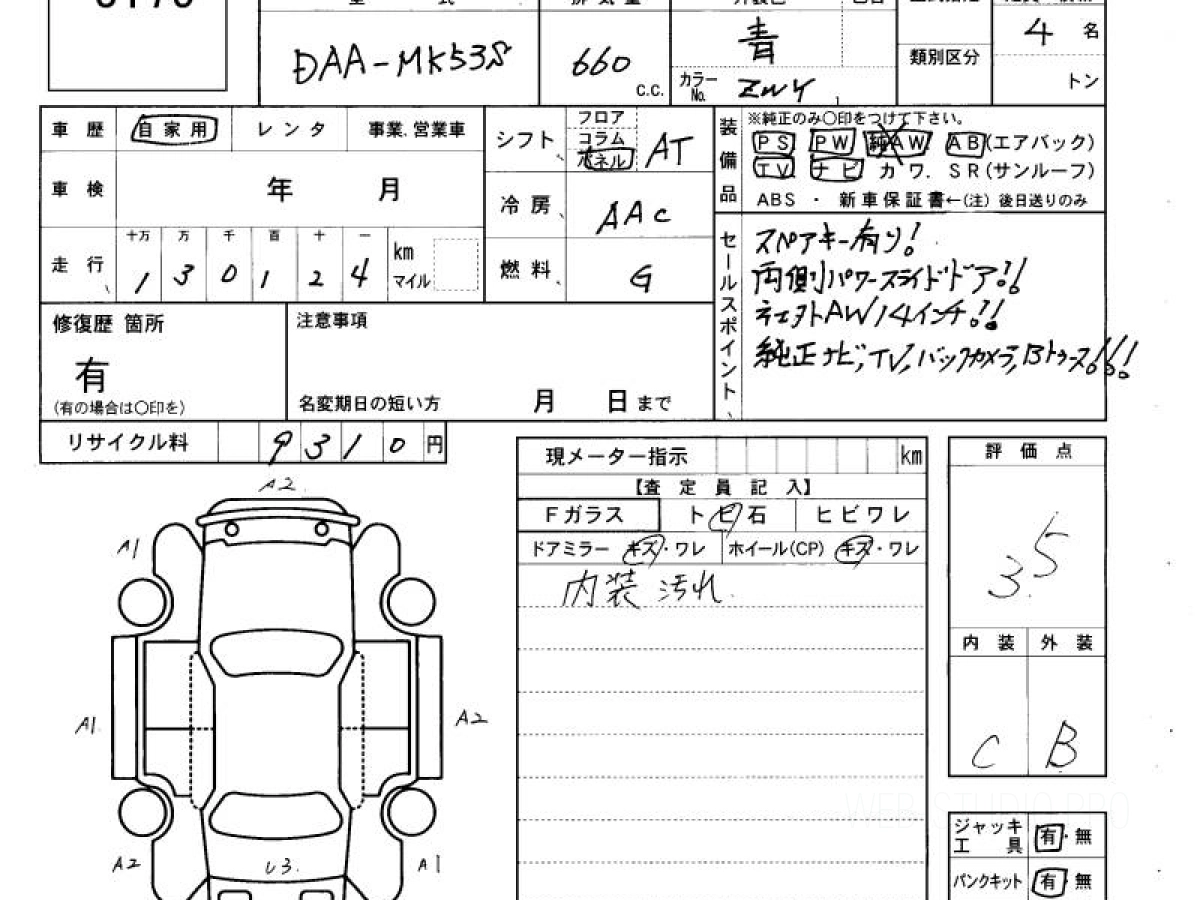 DAA-MK53S
660
C.C.
青
カラー No. ZWY
類別区分
4 名
トン
車歴 自家用 レンタ 事業.営業車
車検 年 月
走行 十万 万 千 百 十 一
1 3 0 1 2 4 km マイル
シフト フロア コラム パネル AT
冷房 AAC
燃料 G
装備品
※純正のみ○印をつけて下さい。
PS PW 純AW AB(エアバック)
TV ナビ カワ. SR(サンルーフ)
ABS ・ 新車保証書←(注) 後日送りのみ
セールスポイント
スペアキー有り!
両側パワースライドドア!!
AW14インチ!!
純正ナビ, TV, バックカメラ,
修復歴 箇所
有
(有の場合は○印を)
注意事項
名変期日の短い方 月 日まで
リサイクル料 9310円
現メーター指示 km
【査定員記入】
Fガラス トビ石 ヒビワレ
ドアミラー キズ・ワレ ホイール(CP) キズ・ワレ
内装 汚れ.
評価点
3.5
内装 外装
C B
A2.
A1
A1.
A2
A2
U3.
A1
ジャッキ 工具 有・無
パンクキット 有・無
WEB STUDIO PRO